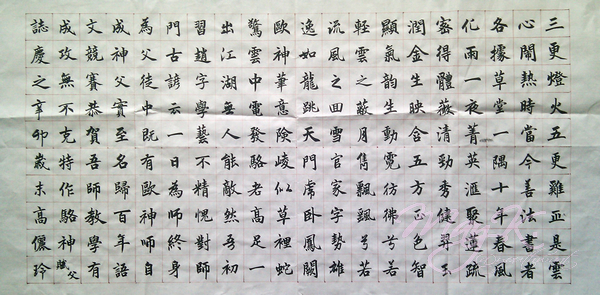 三更燈火五更雞正是雲
心鬧熱時當今善法書者
各據草堂一隅十年春風
化雨一夜菁英滙聚蓮疏
密得體薇清勁秀健昇玄
潤金生映合五方正色智
顯氣韵生動霓彷彿兮若
輕雲之蔽月雋飄颻兮若
流風之回雪官家字勢雄
逸如龍跳天門虎卧鳳闕
歐神華意險崚似草裡蛇
驚雲中電發駱老高足一
出江湖無人能敵然吾初
習趙字學藝不精愧對師
門古諺云一日為師終身
為父徒中既有歐神師自
成神父實至名歸百年語
文競賽恭賀吾師教學有
成攻無不克特作駱神父賦
誌慶之辛卯歲末高儷玲